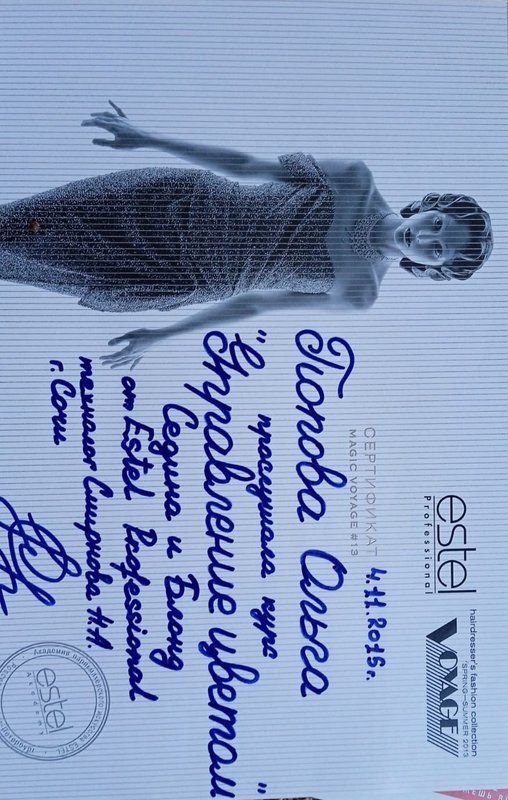 estel
Professional
hairdresser's fashion collection
VOYAGE
SPRING–SUMMER 2013
СЕРТИФИКАТ 4.11.2015г.
MAGIC VOYAGE #13
Попова Ольга
прослушала курс
"Управление цветом"
Седина и Блонд
от Estel Professional
технолог Смирнова Н.А.
г. Сочи
Академия парикмахерского искусства ESTEL
estel
Academy